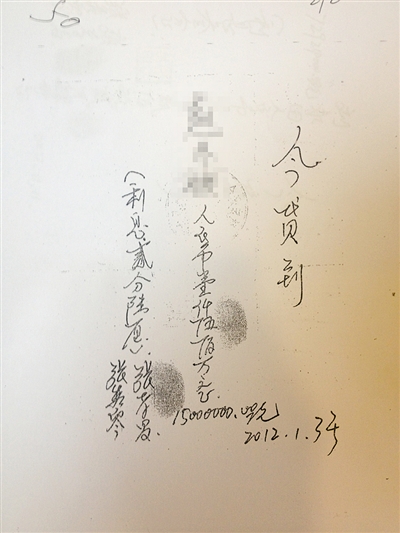 50
今贷到
人民币壹仟伍佰万元正
15000000.00元
2012.1.3号
（利息贰分陆厘）
张
张